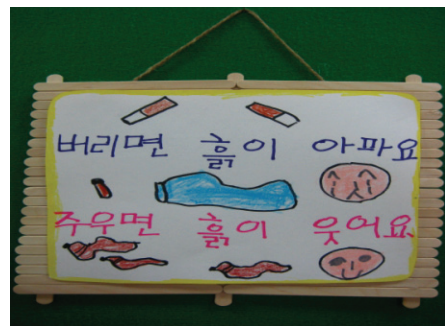 버리면 흙이 아파요
주우면 흙이 웃어요